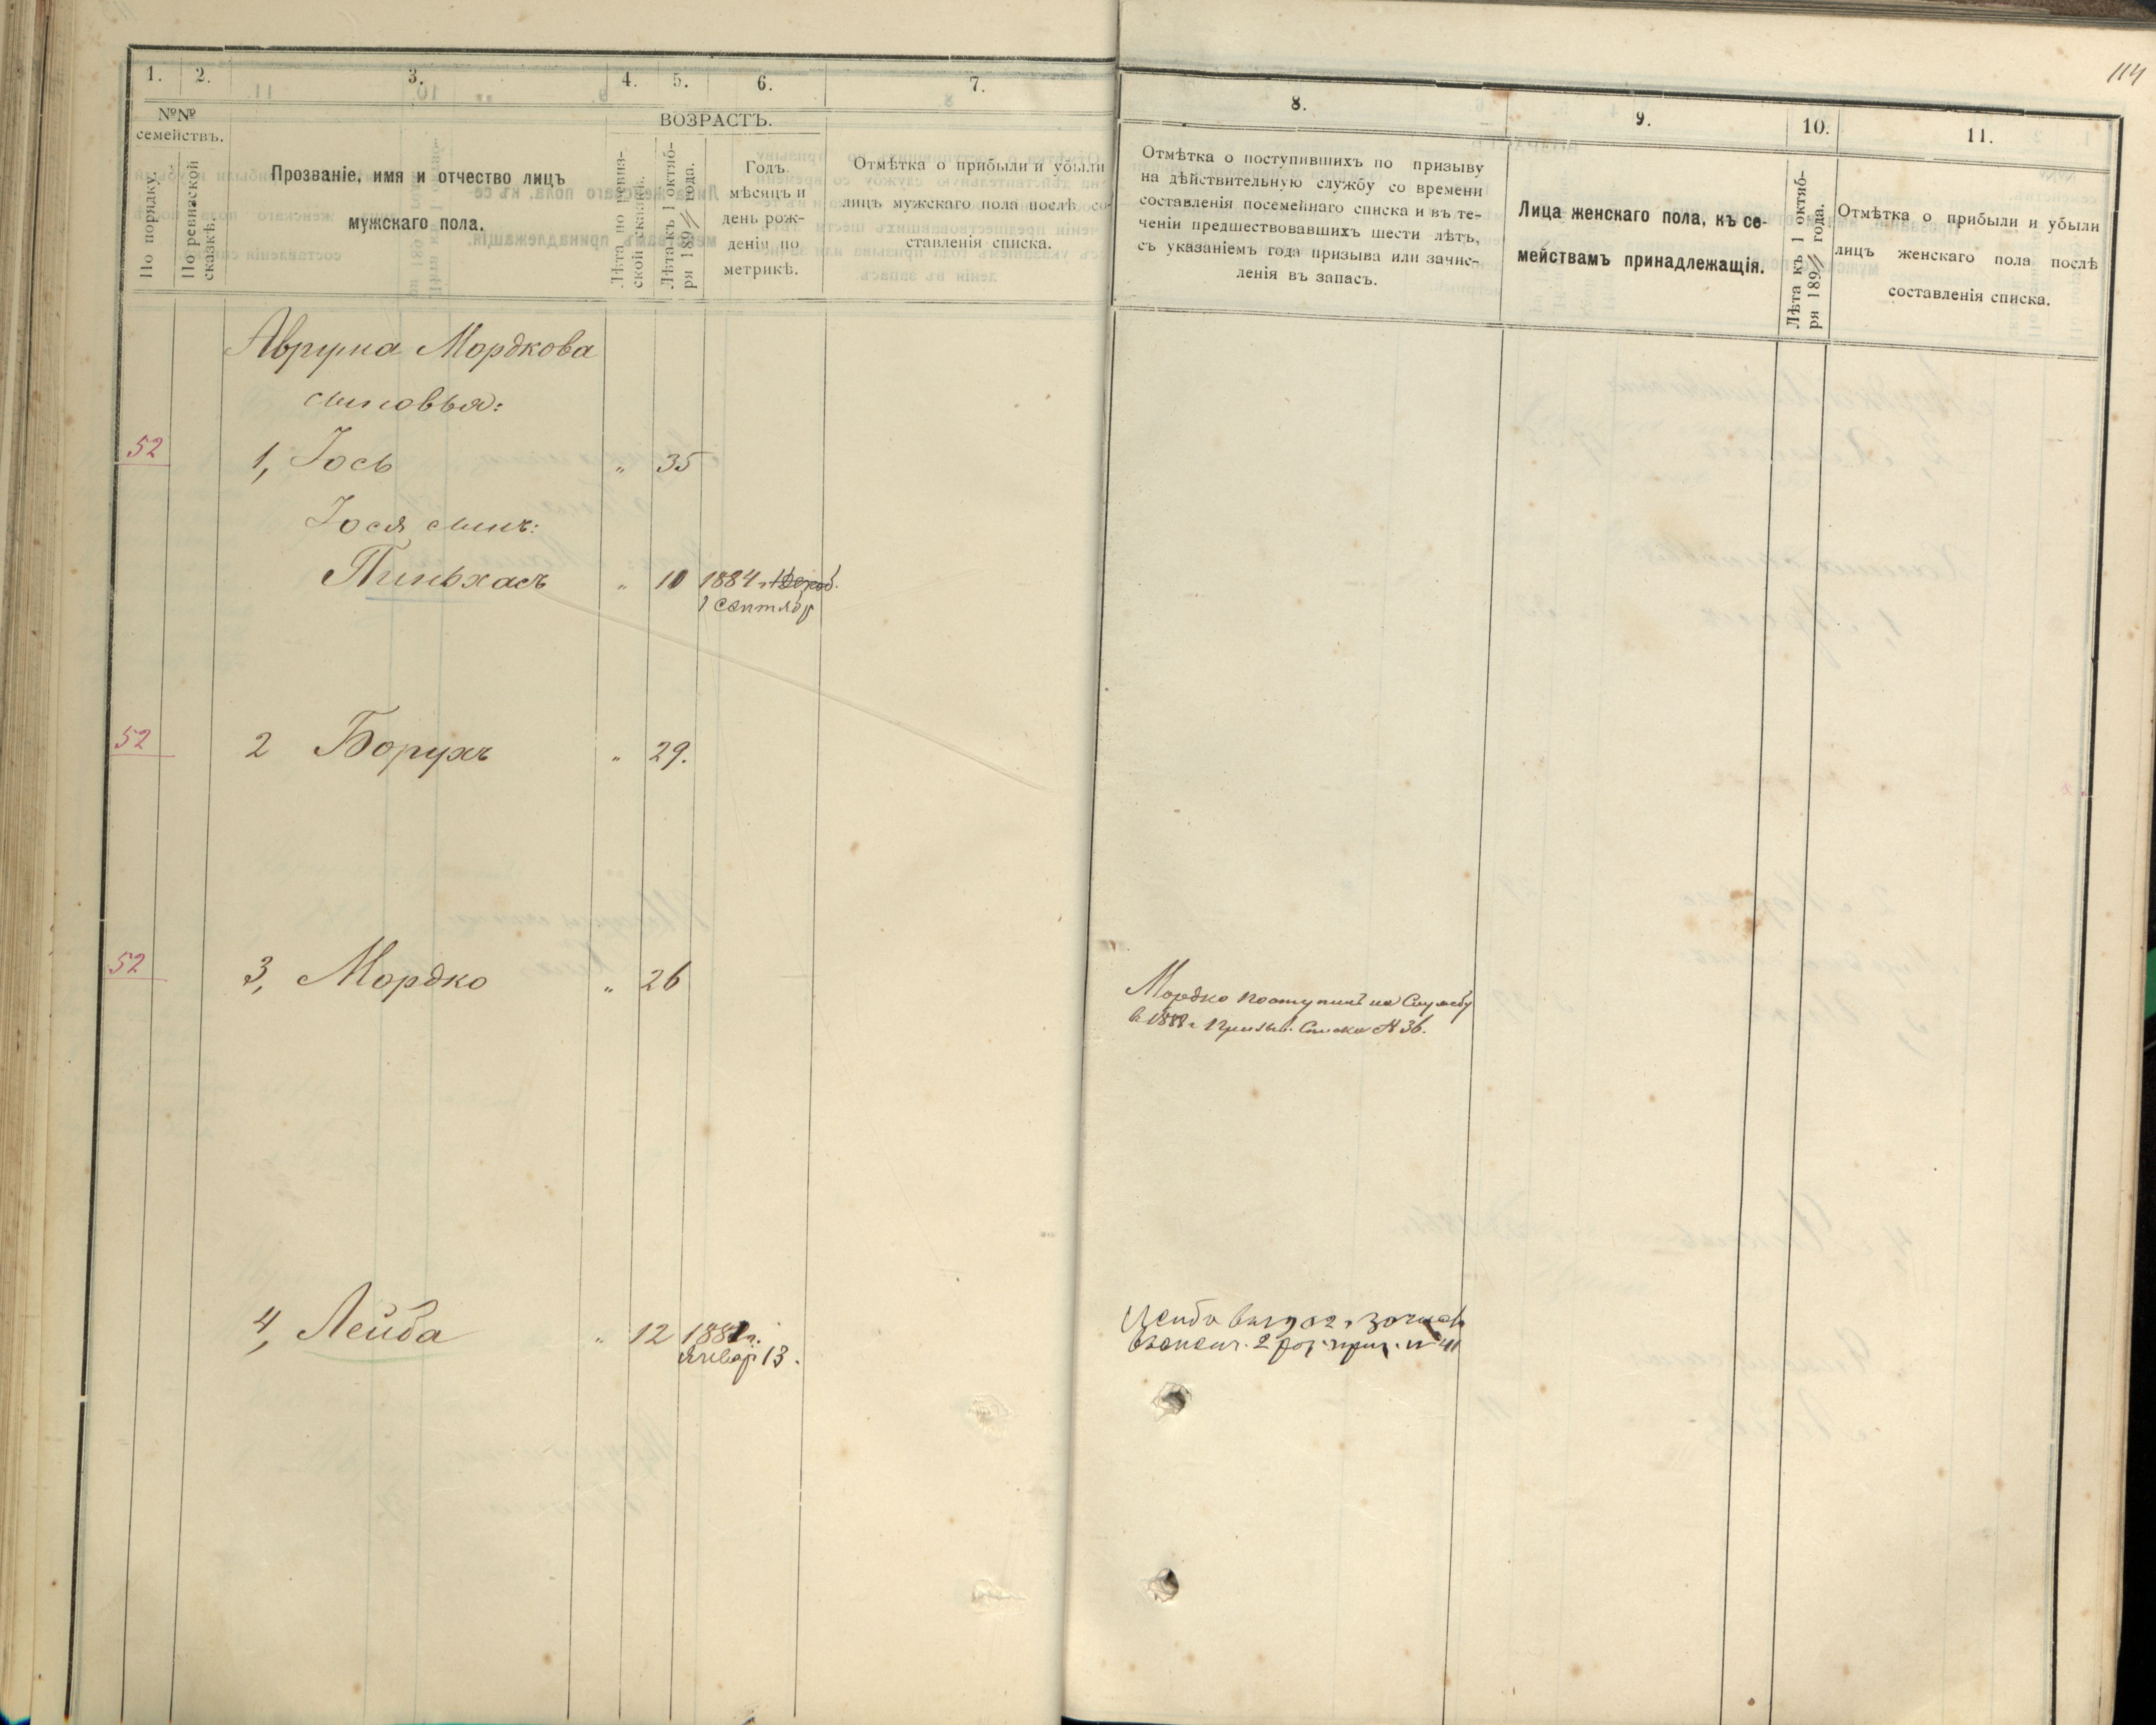 114
1. 2. 3. 4. 5. 6. 7.
№№ семействъ.
По порядку.
По ревизской сказкѣ.
Прозваніе, имя и отчество лицъ
мужскаго пола.
ВОЗРАСТЪ.
Лѣта по ревиз-
ской сказкѣ.
Лѣта къ 1 октяб-
ря 1894 года.
Годъ,
мѣсяцъ и
день рож-
денія по
метрикѣ.
Отмѣтка о прибыли и убыли
лицъ мужскаго пола послѣ со-
ставленія списка.
8. 9. 10. 11.
Отмѣтка о поступившихъ по призыву
на дѣйствительную службу со времени
составленія посемейнаго списка и въ те-
ченіи предшествовавшихъ шести лѣтъ,
съ указаніемъ года призыва или зачис-
ленія въ запасъ.
Лица женскаго пола, къ се-
мействамъ принадлежащія.
Лѣта къ 1 октяб-
ря 1894 года.
Отмѣтка о прибыли и убыли
лицъ женскаго пола послѣ
составленія списка.
Аврума Мордкова
сыновья:
52 1, Іось " 35
Іося сынъ:
Пиньхасъ " 10 1884 г.
1 Сентябр
52 2 Борухъ " 29.
52 3, Мордко " 26
Мордко поступилъ на Службу
в 1888 г. Призыв. Списка № 36.
4, Лейба " 12 1882 г.
Январ 13.
Лейба 1902 г. зачисл
в ополч. 2 раз. приз. № 41